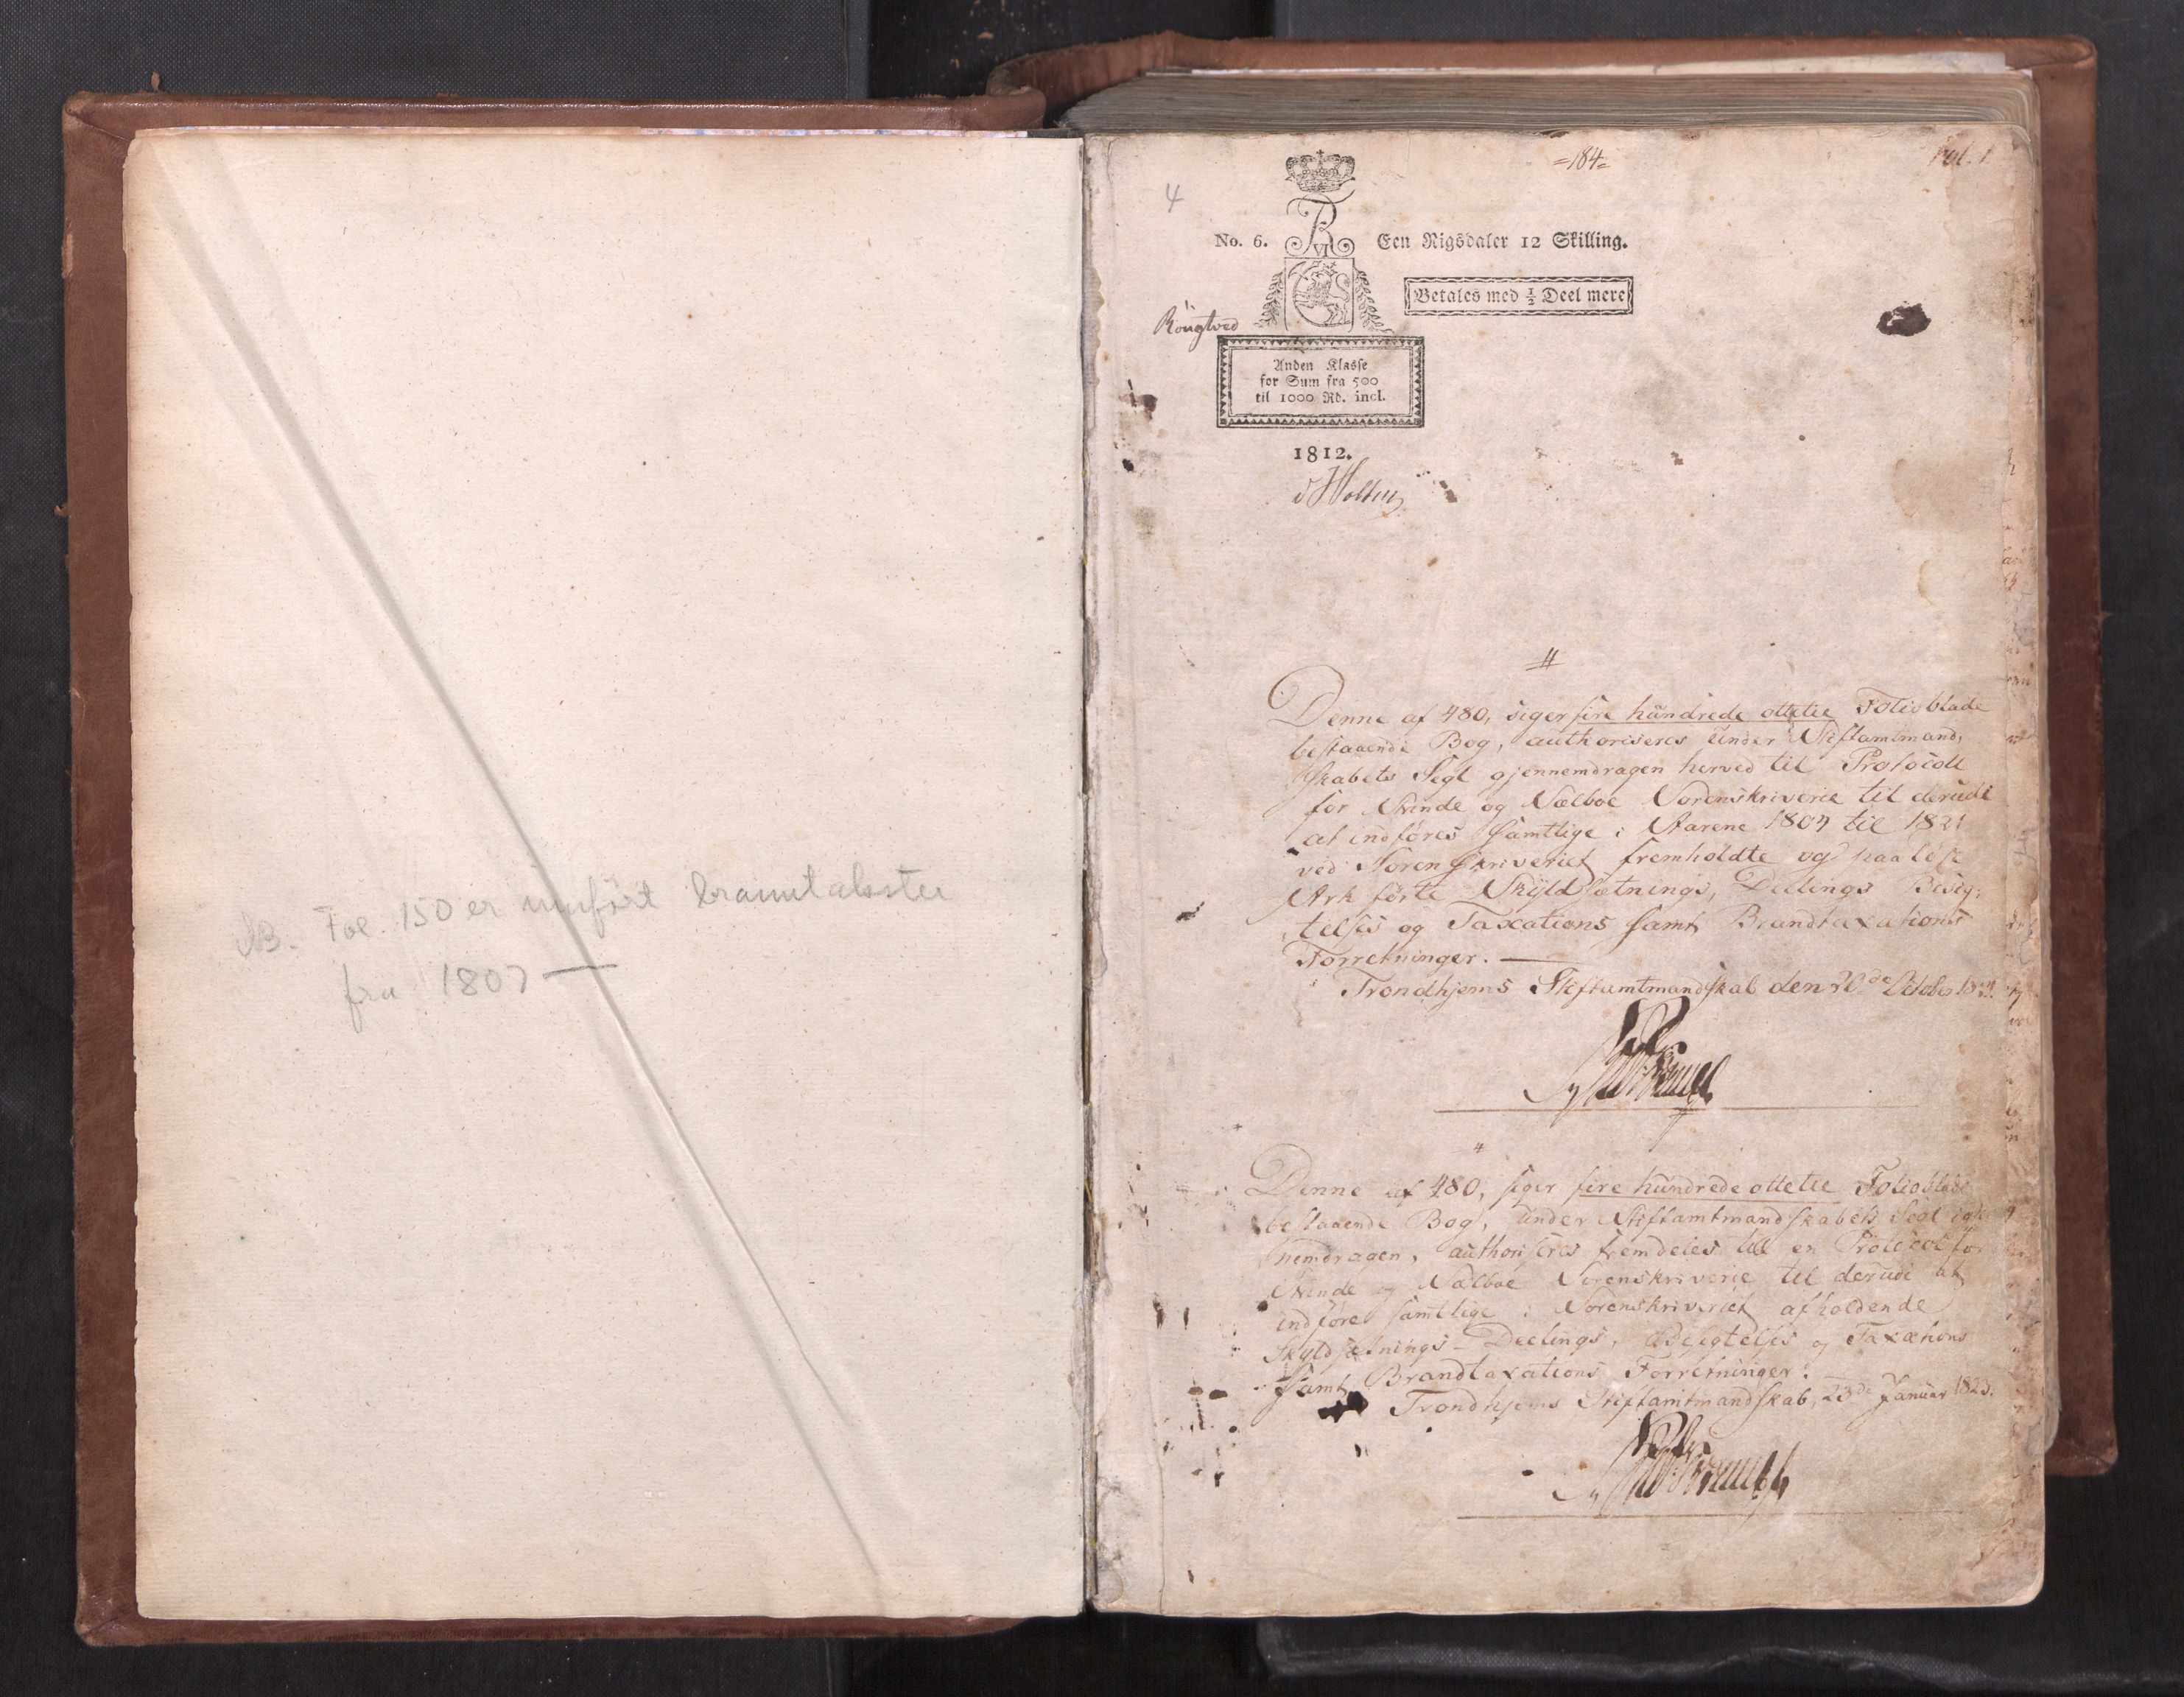 NB. Fol. 150 er innført branntakster
fra 1807 —
=184=
Fol. 1
4
No. 6.
R VI
Een Rigsdaler 12 Skilling.
Betales med ½ Deel mere
Röngtved
Anden Klasse
for Sum fra 500
til 1000 Rd. incl.
1812.
Holten
Denne af 480, siger fire hundrede ottetie Folioblade
bestaaende Bog, authoriseres under Stiftamtmand,
skabets Segl gjennemdragen herved til Protocoll
for Strinde og Sælboe Sorenskriverie til derudi
at indføres samtlige i Aarene 1804 til 1821
ved Sorenskriveriet fremholdte og paa løse
Ark førte Skyldsætnings, Deelings Besig,
telses og Taxations samt Brandtaxations
Forretninger. —
Trondhjems Stiftamtmandskab den 20de October
Denne af 480, siger fire hundrede ottetie Folioblade
bestaaende Bog, under Stiftamtmandskabets Segl
nemdragen, authoriseres fremdeles till en Protocol for
Strinde og Sælboe Sorenskriverie til derudi at
indføre samtlige i Sorenskriveriet afholdende
Skyldsætnings - Deelings, Besigtelses og Taxations
samt Brandtaxations Forretninger.
Trondhjems Stiftamtmandskab, 23de Januar 1823.